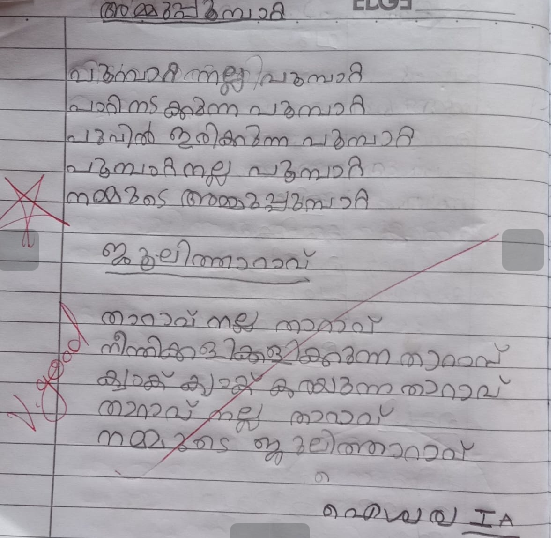 അമ്മുപ്പൂമ്പാറ്റ
പൂമ്പാറ്റ നല്ല പൂമ്പാറ്റ
പാറി നടക്കുന്ന പൂമ്പാറ്റ
പൂവിൽ ഇരിക്കുന്ന പൂമ്പാറ്റ
പൂമ്പാറ്റ നല്ല പൂമ്പാറ്റ
നമ്മുടെ അമ്മുപ്പൂമ്പാറ്റ
താറാവ് നല്ല താറാവ്
നീന്തിക്കളിക്കുന്ന താറാവ്
ക്വാക് ക്വാക് കരയുന്ന താറാവ്
താറാവ് നല്ല താറാവ്
നമ്മുടെ
V. good
I A